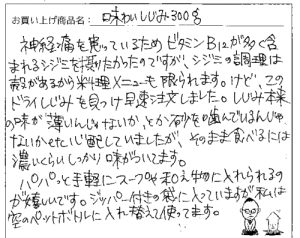 お買い上げ商品名： 味わいしじみ300g
神経痛を患っているためビタミンB12が多く含
まれるシジミを摂りたかったのですが、シジミの調理は
殻があるから料理メニューも限られます。けど、この
ドライしじみを見つけ早速注文しました。しじみ本来
の味が薄いんじゃないか、とか砂を噛んでいるんじゃ
ないかせんい心配していましたが、そのまま食べるには
濃いくらいしっかり味がついてます。
パパパッと手軽にスープや和え物に入れられるの
が嬉しいです。ジッパー付きの袋に入っていますが私は
空のペットボトルに入れ替えて使ってます。